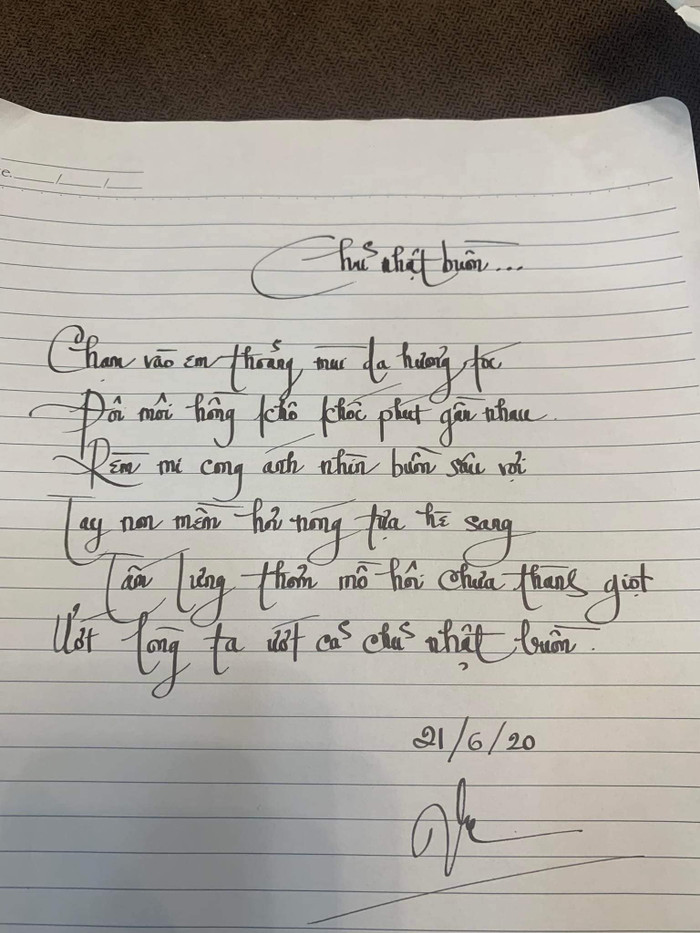 e. __/__/__
Chủ nhật buồn...
Chạm vào em thoảng mùi da hương tóc
Đôi môi hồng khô khốc phút gần nhau
Rèm mi cong anh nhìn buồn sâu vợi
Tay non mềm hơi nóng tựa hè sang
Tấm lưng thơm mồ hôi chưa thành giọt
Ướt lòng ta ướt cả chủ nhật buồn.
21/6/20